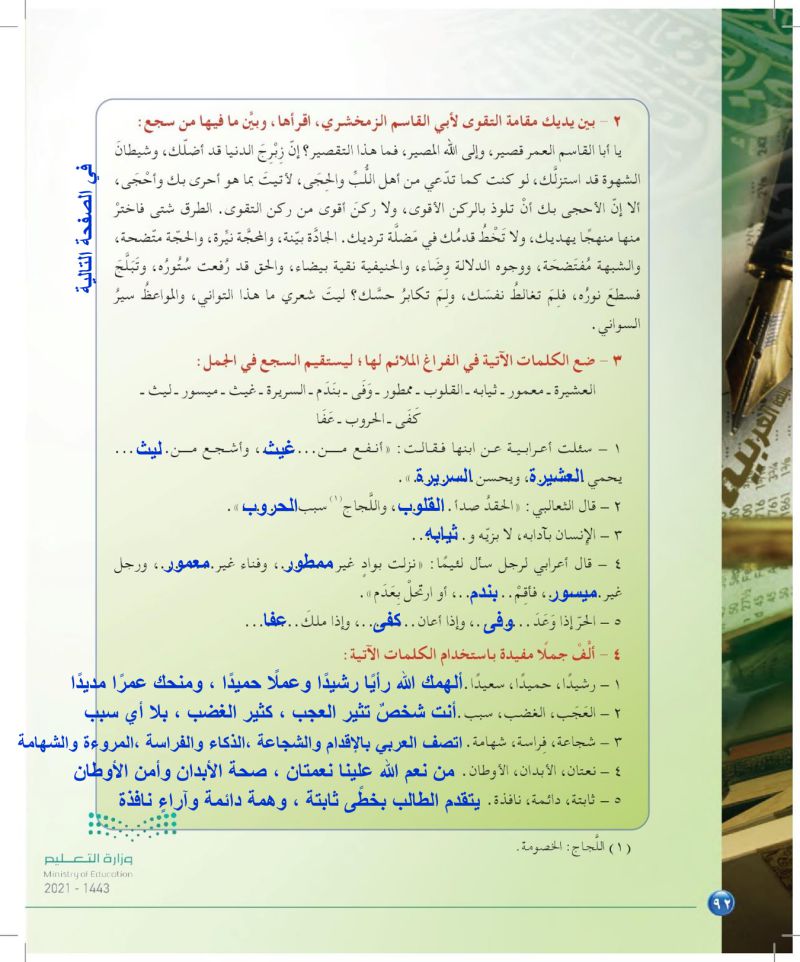 ٢ - بين يديك مقامة التقوى لأبي القاسم الزمخشري، اقرأها، وبيِّن ما فيها من سجع:
يا أبا القاسم العمر قصير، وإلى الله المصير، فما هذا التقصير؟ إنّ زِبْرِجَ الدنيا قد أضلّك، وشيطانَ
الشهوة قد استزلَّك، لو كنت كما تدّعي من أهل اللُّبِّ والحِجَى، لأتيتَ بما هو أحرى بك وأحْجَى،
ألا إنّ الأحجى بك أنْ تلوذ بالركن الأقوى، ولا ركنَ أقوى من ركن التقوى. الطرق شتى فاخترْ
منها منهجًا يهديك، ولا تَخْطُ قدمُك في مَضلَّة ترديك. الجادَّة بيّنة، والمحجَّة نيِّرة، والحجّة متّضحة،
والشبهة مُفتَضحَة، ووجوه الدلالة وِضَاء، والحنيفية نقية بيضاء، والحق قد رُفعت سُتُورُه، وتَبَلَّجَ
فسطعَ نورُه، فلِمَ تغالطُ نفسَك، ولِمَ تكابرُ حسَّك؟ ليتَ شعري ما هذا التواني، والمواعظُ سيرُ
السواني.
في الصفحة التالية
٣ - ضع الكلمات الآتية في الفراغ الملائم لها؛ ليستقيم السجع في الجمل:
العشيرة ـ معمور ـ ثيابه ـ القلوب ـ ممطور ـ وَفَى ـ بنَدَم ـ السريرة ـ غيث ـ ميسور ـ ليث ـ
كَفَى ـ الحروب ـ عَفَا
١ - سئلت أعرابية عن ابنها فقالت: «أنفع من... غيث، وأشجع من. ليث ...
يحمي العشيرة، ويحسن السريرة.».
٢ - قال الثعالبي: «الحقدُ صدأ. القلوب، واللَّجاج(١) سبب الحروب».
٣ - الإنسان بآدابه، لا بزيّه و. ثيابه..
٤ - قال أعرابي لرجل سأل لئيمًا: «نزلت بوادٍ غير ممطور.، وفناء غير.معمور.، ورجل
غير.ميسور.، فأقِمْ.. بندم..، أو ارتحلْ بِعَدَم».
٥ - الحرّ إذا وَعَدَ...وفى..، وإذا أعان..كفى..، وإذا ملكَ..عفا...
٤ - ألِّفْ جملًا مفيدة باستخدام الكلمات الآتية:
١ - رشيدًا، حميدًا، سعيدًا. ألهمك الله رأيًا رشيدًا وعملًا حميدًا ، ومنحك عمرًا مديدًا
٢ - العَجَب، الغضب، سبب. أنت شخصٌ تثير العجب ، كثير الغضب ، بلا أي سبب
٣ - شجاعة، فِراسة، شهامة. اتصف العربي بالإقدام والشجاعة ،الذكاء والفراسة ،المروءة والشهامة
٤ - نعتان، الأبدان، الأوطان. من نعم الله علينا نعمتان ، صحة الأبدان وأمن الأوطان
٥ - ثابتة، دائمة، نافذة. يتقدم الطالب بخطًى ثابتة ، وهمة دائمة وآراءٍ نافذة
(١) اللَّجاج: الخصومة.
وزارة التعليم
Ministry of Education
2021 - 1443
٩٢